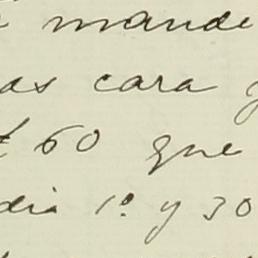 mande
as cara y
60 que
dia 1º y 30